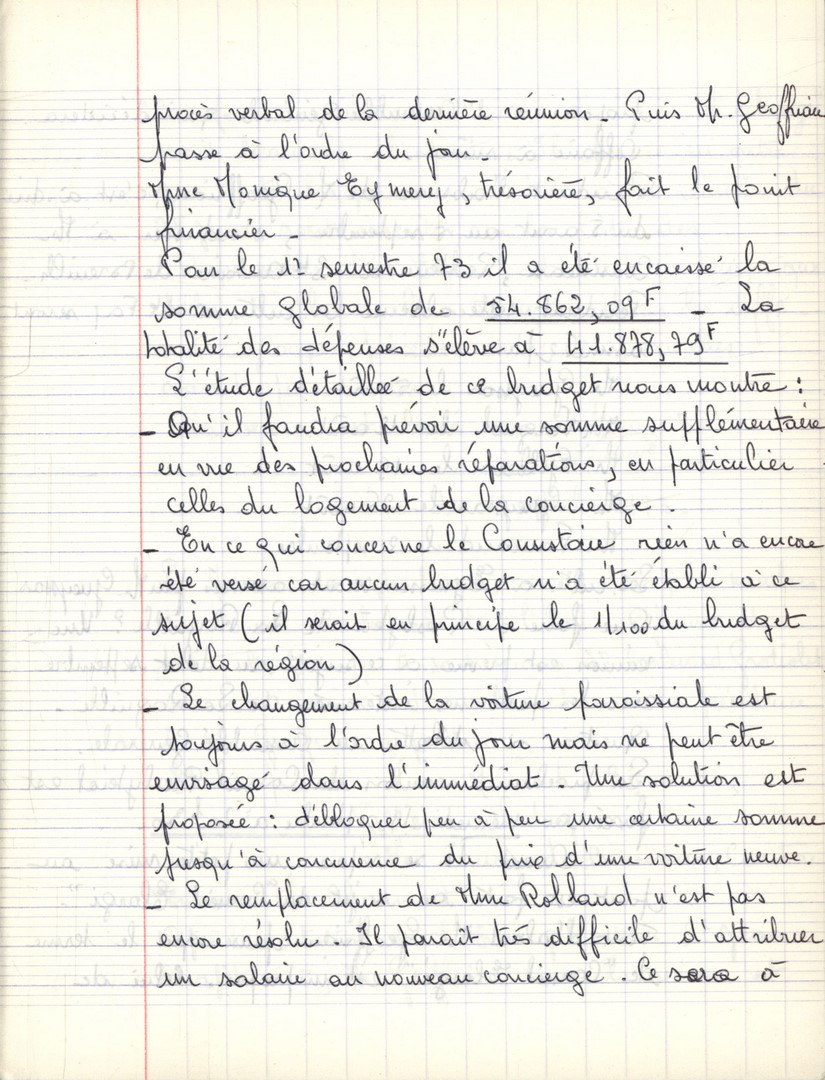 procès verbal de la dernière réunion - Puis Mr. Geoffriau
passe à l'ordre du jour -
Mme Monique Eymerej, trésorière, fait le point
financier -
Pour le 1er semestre 73 il a été encaissé la
somme globale de 54.862,09 F - La
totalité des dépenses s'élève à 41.878,79 F
L'étude détaillée de ce budget nous montre :
- Qu'il faudra prévoir une somme supplémentaire
en vue des prochaines réparations, en particulier
celles du logement de la concierge.
- En ce qui concerne le Consistoire rien n'a encore
été versé car aucun budget n'a été établi à ce
sujet (il serait en principe le 1/100 du budget
de la région)
- Le changement de la voiture paroissiale est
toujours à l'ordre du jour mais ne peut être
envisagé dans l'immédiat. Une solution est
proposée : débloquer peu à peu une certaine somme
jusqu'à concurence du prix d'une voiture neuve.
- Le remplacement de Mme Rolland n'est pas
encore résolu. Il paraît très difficile d'attribuer
un salaire au nouveau concierge. Ce sera à